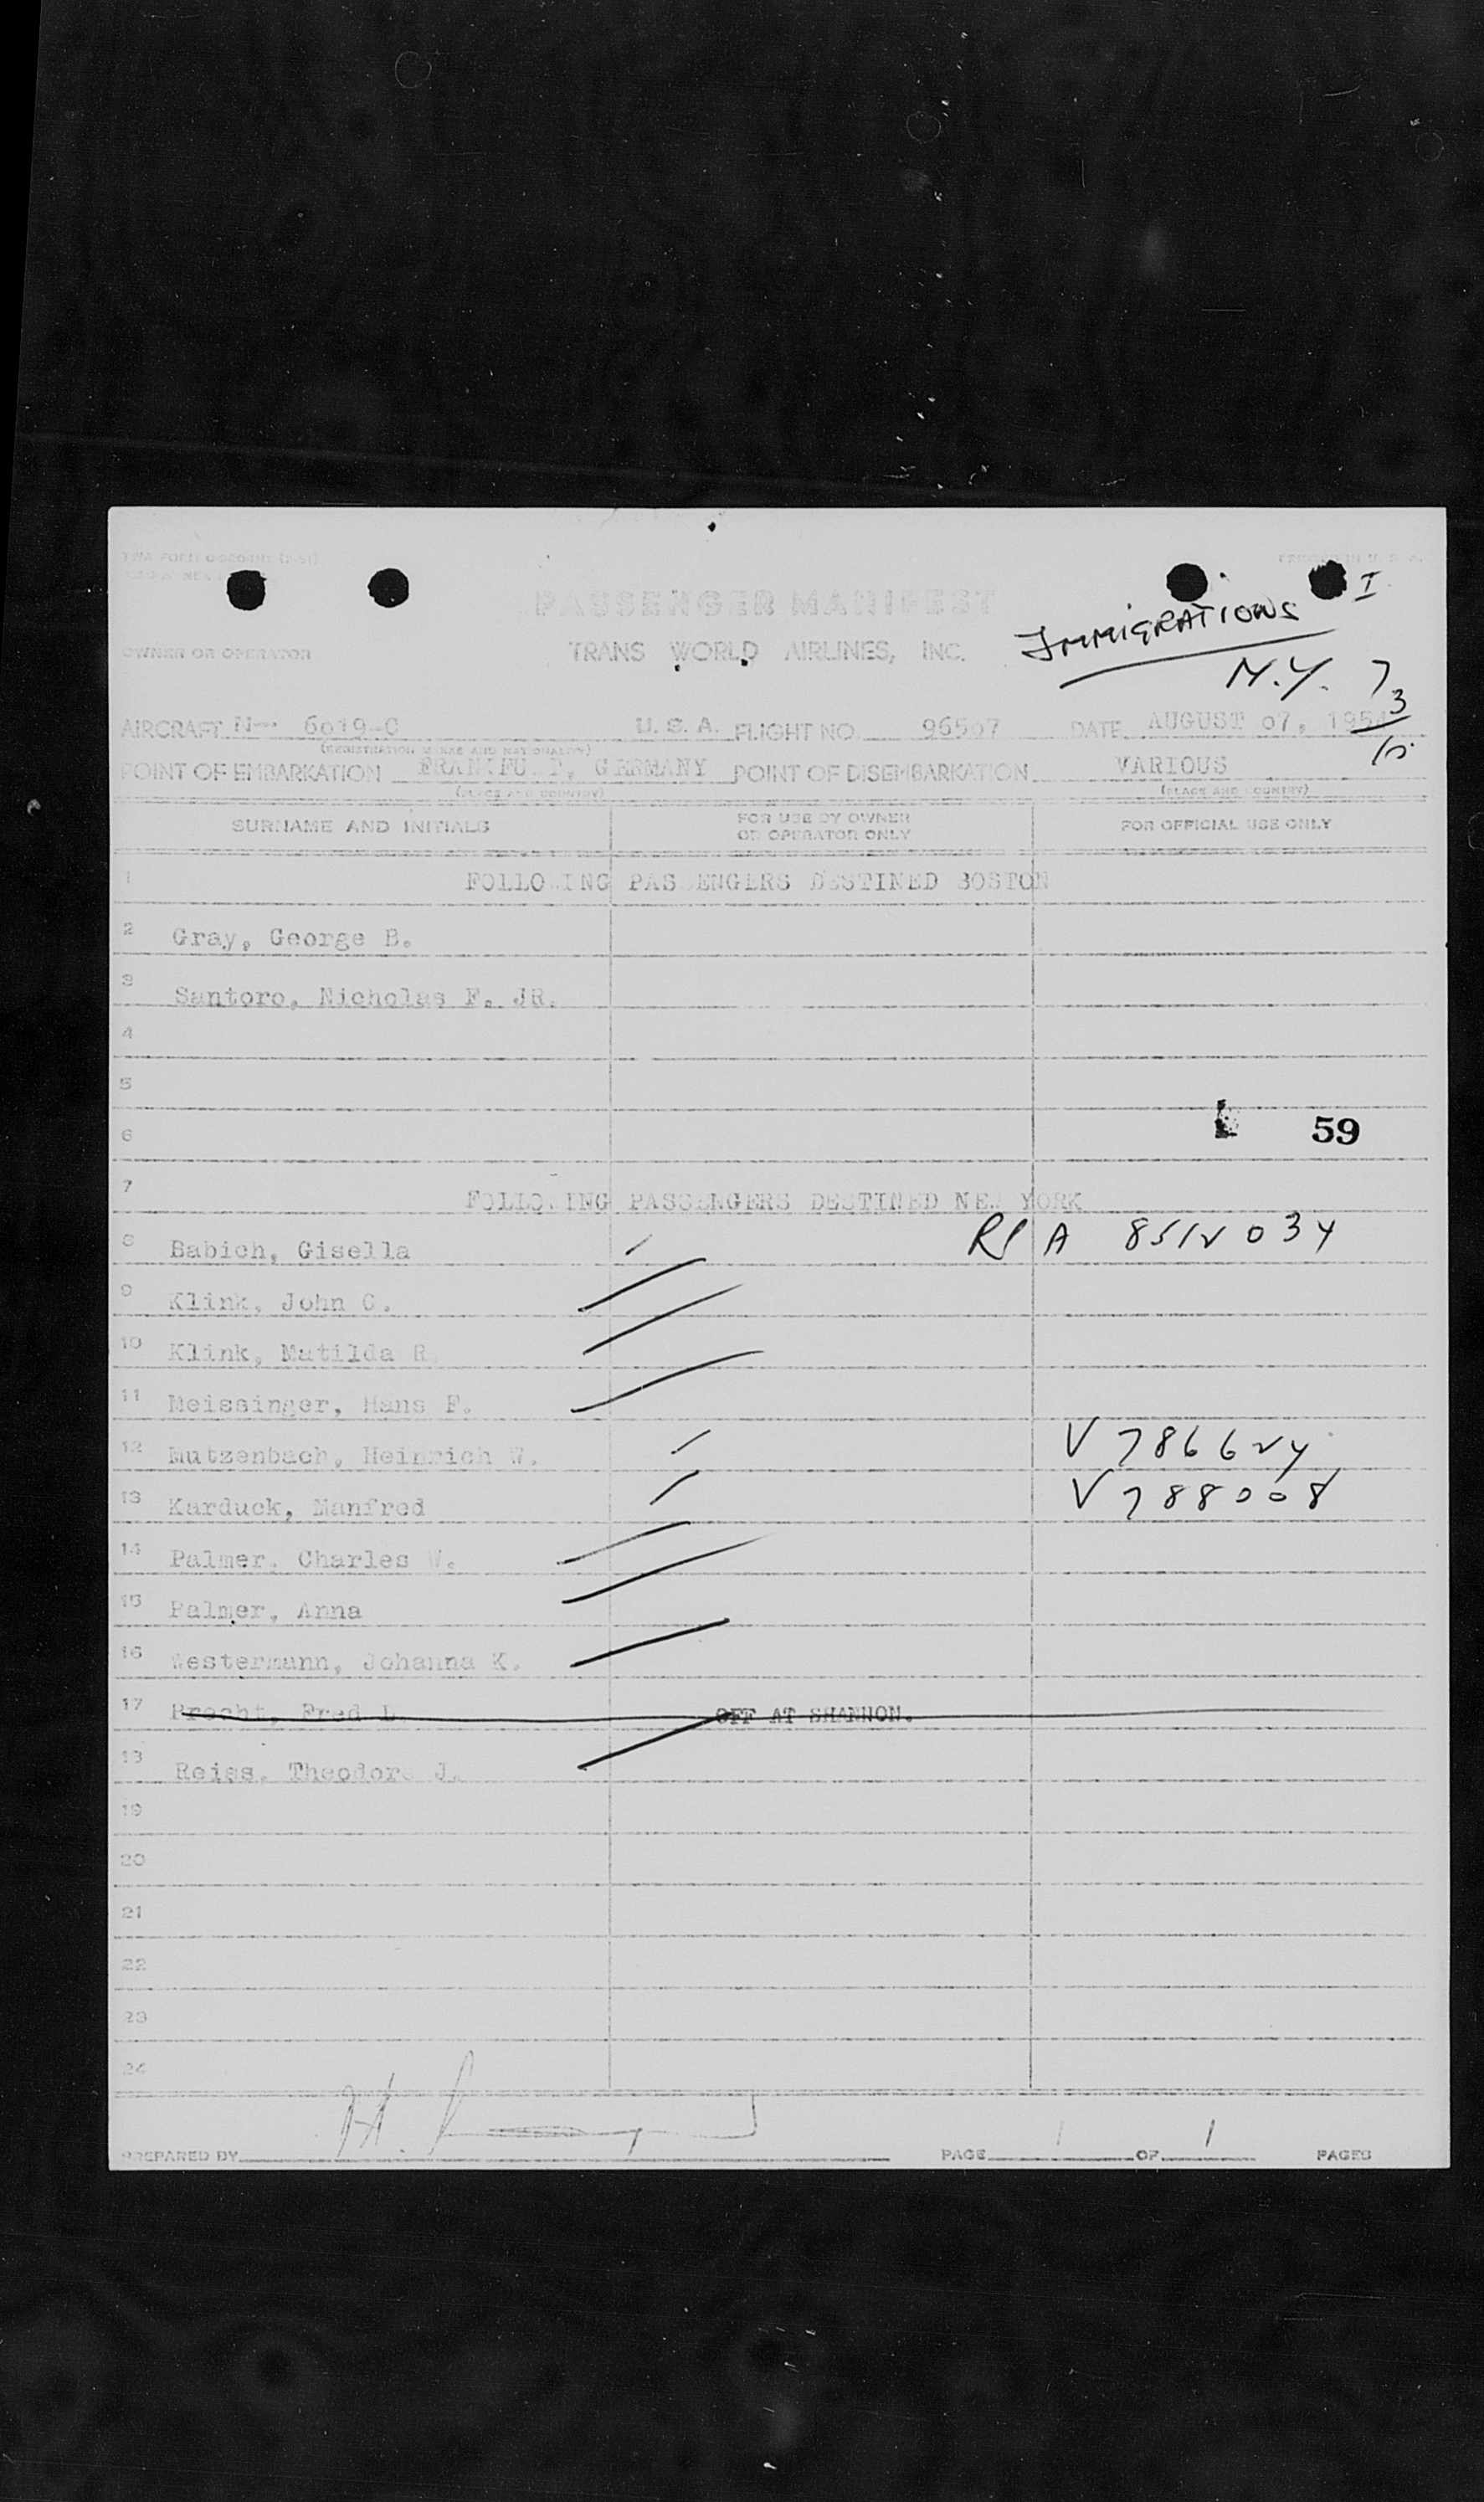 PRINTED IN U. S. A.
I
PASSENGER MANIFEST
IMMIGRATIONS
OWNER OR OPERATOR TRANS WORLD AIRLINES, INC.
N.Y. 7
3
10
AIRCRAFT N-- 6019-C U.S.A. FLIGHT NO. 96507 DATE AUGUST 07, 1954
(REGISTRATION MARKS AND NATIONALITY)
POINT OF EMBARKATION FRANKFURT, GERMANY POINT OF DISEMBARKATION VARIOUS
(PLACE AND COUNTRY) (PLACE AND COUNTRY)
SURNAME AND INITIALS FOR USE BY OWNER OR OPERATOR ONLY FOR OFFICIAL USE ONLY
1 FOLLOWING PASSENGERS DESTINED BOSTON
2 Gray, George B.
3 Santoro, Nicholas F. JR.
4
5
6 59
7 FOLLOWING PASSENGERS DESTINED NEW YORK
8 Babich, Gisella A 8512034
9 Klink, John C.
10 Klink, Matilda R.
11 Meissinger, Hans F.
12 Mutzenbach, Heinrich W. V 786624
13 Karduck, Manfred V 788008
14 Palmer, Charles W.
15 Palmer, Anna
16 Westermann, Johanna K.
17 Precht, Fred L. OFF AT SHANNON.
18 Reiss, Theodore J.
19
20
21
22
23
24
PREPARED BY PAGE 1 OF 1 PAGES